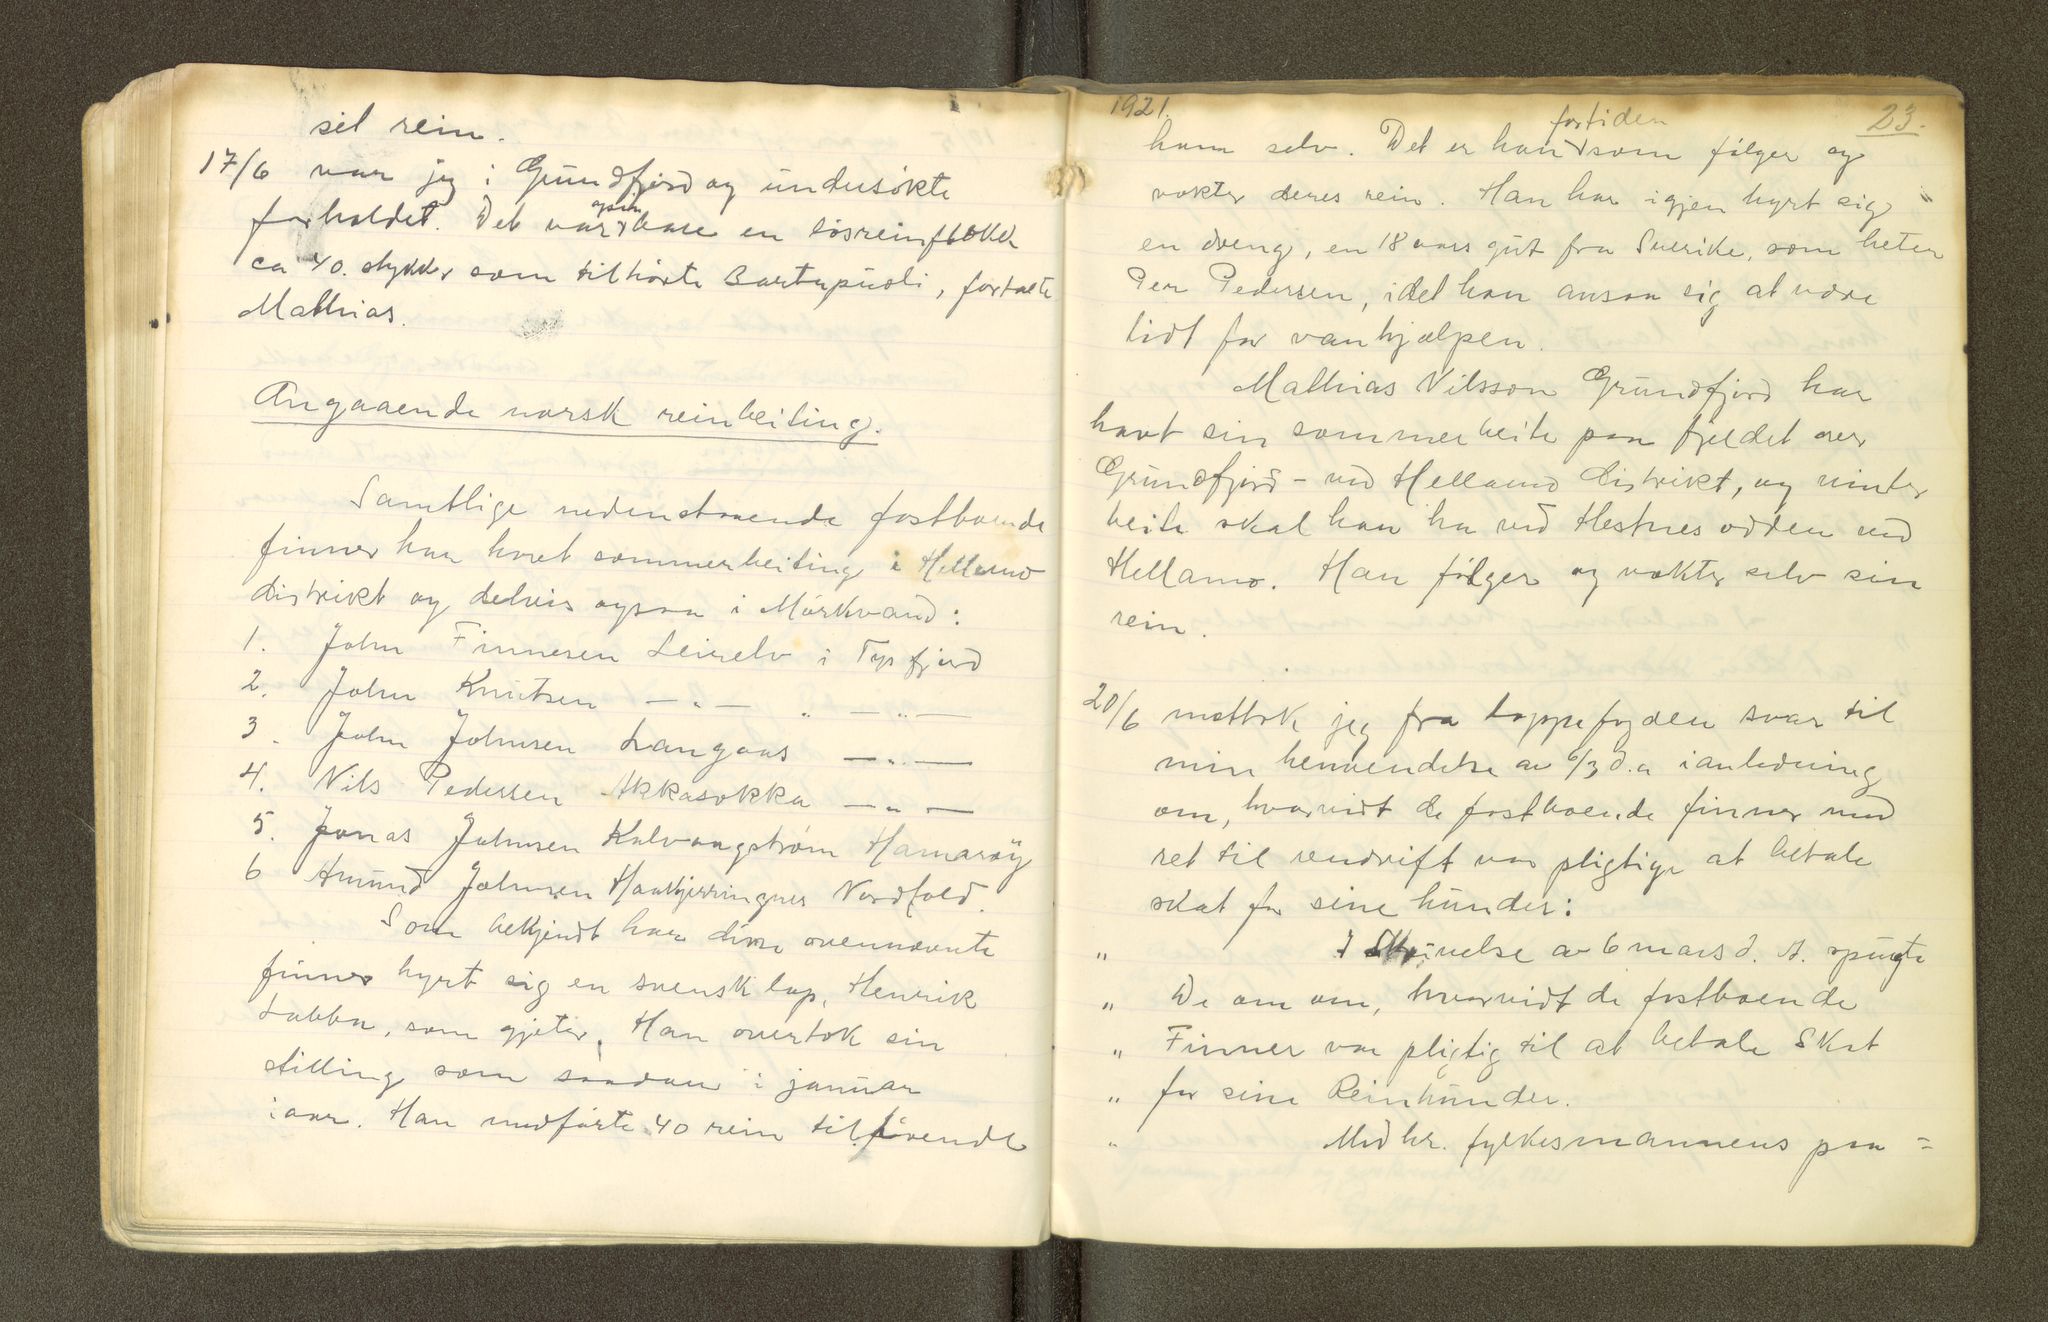 sit rein.
17/6 var jeg i Grundfjord og undersökte
forholdet. Det var ogsaa bare en lösreinflokk
ca 40. stykker som tilhörte Bartapuoli, fortalte
Mathias.
Angaaende norsk reinbeiting.
Samtlige nedenstaaende fastboende
finner har havt sommerbeiting i Hellemo
distrikt og delvis ogsaa i Mörkvand:
1. John Finnesen Leirelv i Tysfjord
2. John Knutsen — " — " — " —
3. John Johnsen Langaas — " —
4. Nils Pedersen Akkasokka — " —
5. Jonas Johnsen Kalvaagström Hamaröy
6 Amund Johnsen Haakjerringnes Nordfold.
Som bekjendt har disse ovennævnte
finner hyrt sig en svensk lap, Henrik
Labba, som gjeter. Han overtok sin
stilling som saadan i januar
iaar. Han medförte 40 rein tilhörende
1921. 23.
ham selv. Det er han fortiden som fölger og
vokter deres rein. Han har igjen hyrt sig
en dreng, en 18 aars gut fra Sverike, som heter
Per Pedersen, idet han ansaa sig at være
lidt for vanhjælpen.
Mathias Nilsson Grundfjord har
havt sin sommerbeite paa fjeldet over
Grundfjord – ved Hellemo distrikt, og vinter
beite skal han ha ved Hestnesodden ved
Hellamo. Han fölger og vokter selv sin
rein.
20/6 mottok jeg fra Lappefogden svar til
min henvendelse av 6/3 d.a i anledning
om, hvorvidt de fastboende finner med
ret til rendrift var pligtige at betale
skat for sine hunder:
" I Skrivelse av 6 mars d. A. spurgte
" De om om, hvorvidt de fastboende
" Finner var pligtig til at betale Skat
" for sine Reinhunder.
" Med hr. fylkesmannens paa =